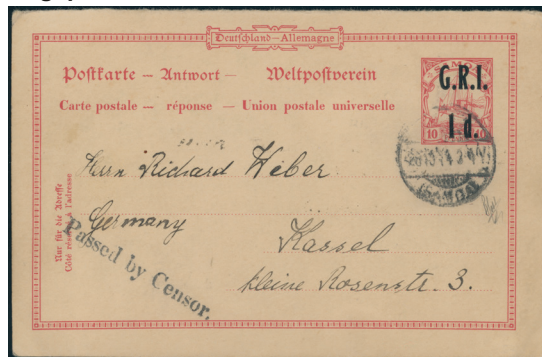 Deutschland–Allemagne
Postkarte — Antwort — Weltpostverein
Carte postale — réponse — Union postale universelle
SAMOA
G.R.I.
1 d.
10 10
Herrn Richard Weber
Germany
Kassel
kleine Rosenstr. 3.
Nur für die Adresse
Côté réservé à l'adresse
Passed by Censor.